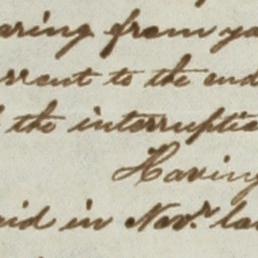 aring from yo
rrent to the end
the interruptio
Having
aid in Novr. la